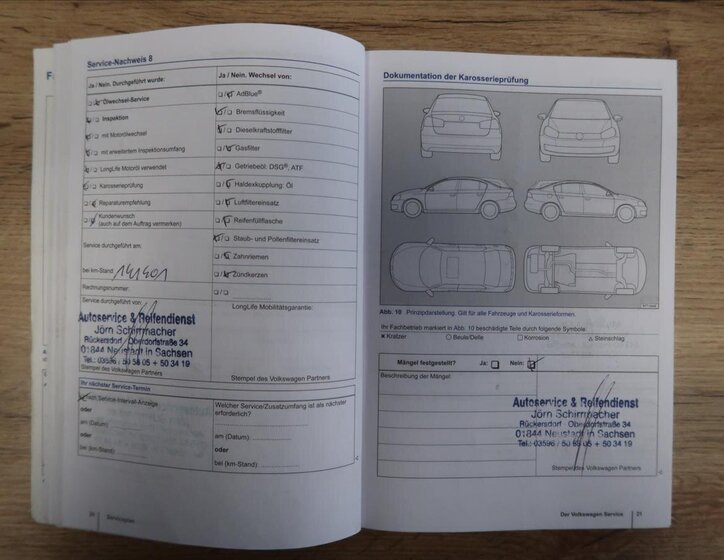 Service-Nachweis 8
Ja / Nein. Durchgeführt wurde:
Ölwechsel-Service
Inspektion
mit Motorölwechsel
mit erweitertem Inspektionsumfang
LongLife Motoröl verwendet
Karosserieprüfung
Reparaturempfehlung
Kundenwunsch
(auch auf dem Auftrag vermerken)
Service durchgeführt am:
bei km-Stand: 141401
Rechnungsnummer:
Service durchgeführt von:
Autoservice & Reifendienst
Jörn Schirrmacher
Rückersdorf · Oberdorfstraße 34
01844 Neustadt in Sachsen
Tel.: 03596 / 50 58 05 + 50 34 19
Stempel des Volkswagen Partners
Ja / Nein. Wechsel von:
AdBlue®
Bremsflüssigkeit
Dieselkraftstofffilter
Gasfilter
Getriebeöl: DSG®, ATF
Haldexkupplung: Öl
Luftfiltereinsatz
Reifenfüllflasche
Staub- und Pollenfiltereinsatz
Zahnriemen
Zündkerzen
LongLife Mobilitätsgarantie:
Stempel des Volkswagen Partners
Ihr nächster Service-Termin
nach Service-Intervall-Anzeige
oder
am (Datum):
oder
bei (km-Stand):
Welcher Service/Zusatzumfang ist als nächster
erforderlich?
am (Datum):
oder
bei (km-Stand):
20 Serviceplan
Dokumentation der Karosserieprüfung
Abb. 10 Prinzipdarstellung. Gilt für alle Fahrzeuge und Karosserieformen.
Ihr Fachbetrieb markiert in Abb. 10 beschädigte Teile durch folgende Symbole:
× Kratzer ○ Beule/Delle □ Korrosion △ Steinschlag
Mängel festgestellt? Ja: Nein:
Beschreibung der Mängel:
Autoservice & Reifendienst
Jörn Schirrmacher
Rückersdorf · Oberdorfstraße 34
01844 Neustadt in Sachsen
Tel.: 03596 / 50 58 05 + 50 34 19
Stempel des Volkswagen Partners
Der Volkswagen Service 21